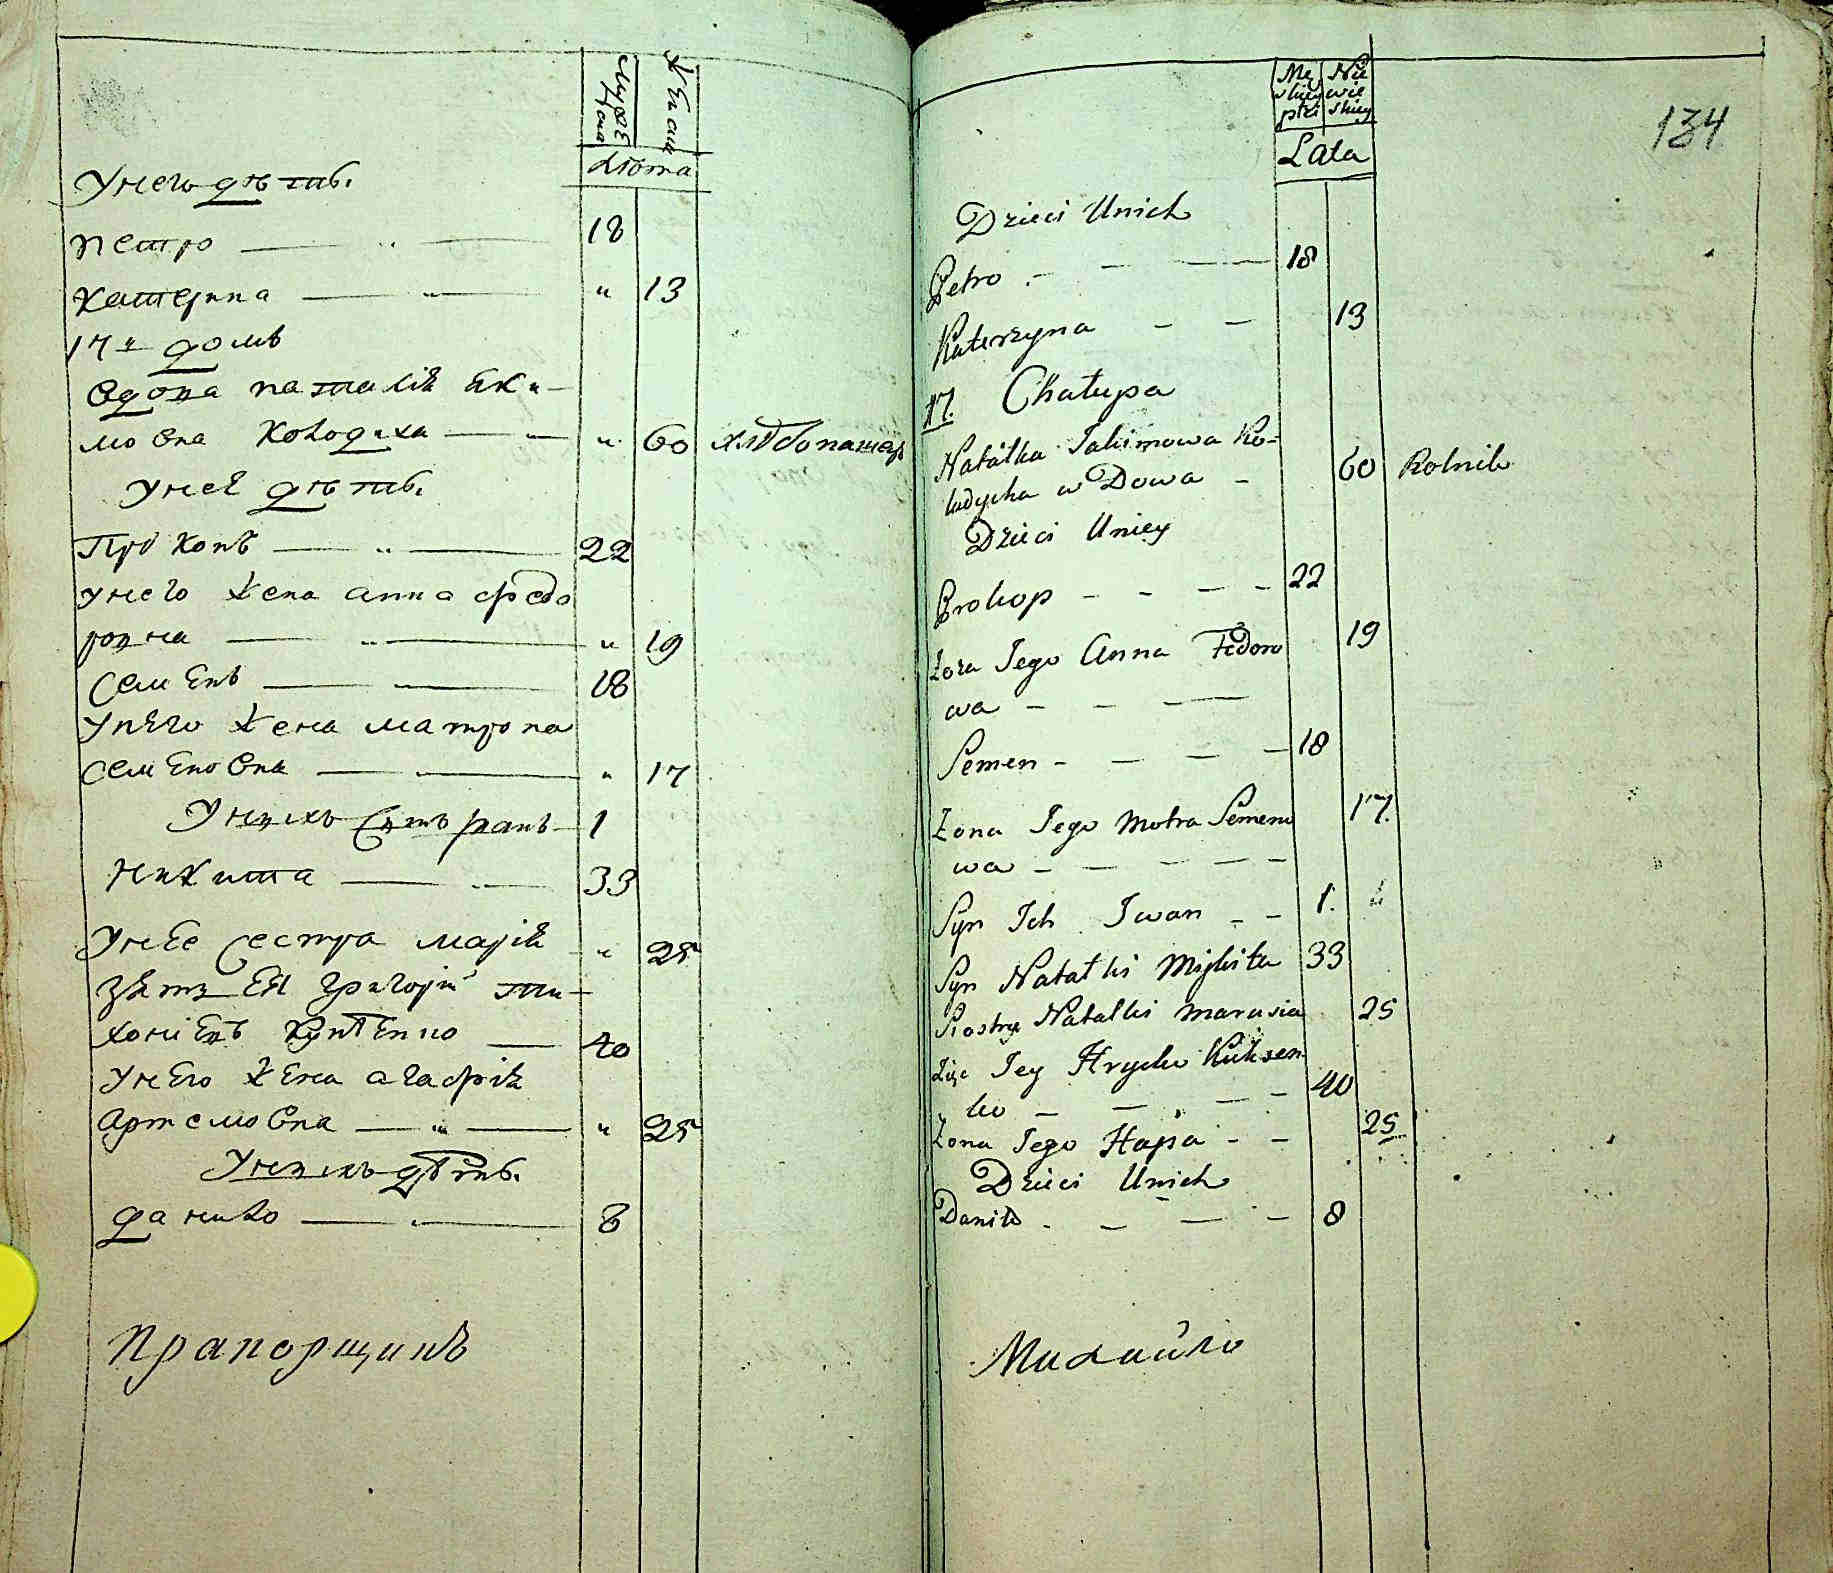 Мужеска
Женска
Лѣта
У него дѣти.
Петро 18
Катерина " 13
17й домъ
Вдова Наталія Яки-
мовна Колодиха " 60 хлѣбопашецъ
У неей дѣти.
Прокопъ 22
У него жена Анна Федо
ровна " 19
Семенъ 18
У него жена Матрона
Семеновна " 17
У нихъ сынъ Іванъ 1
Никита 33
У нее сестра Марія " 25
Зять ея Григорій Ти-
40
У него жена Агафія
Артемовна " 25
У нихъ дѣти.
Данило 8
Прапорщикъ
134
Męskiey płci
Niewieskiey
Lata
Dzieci Unich
Petro 18
Katerzyna 13
17. Chałupa
Natałka Jakimowa Ko-
łodycha w Dowa 60 Rolnik
Dzieci Uniey
Prokop 22
Żona Jego Anna Fedoro 19
wa
Semen 18
Żona Jego Motra Semeno 17.
wa
Syn Ich Iwan 1.
Syn Natałki Mikita 33
Siostra Natałki Marusia 25
Jey Hryćko Kuksen
ko 40
Żona Jego Hapa 25
Dzieci Unich
Daniło 8
Михайло